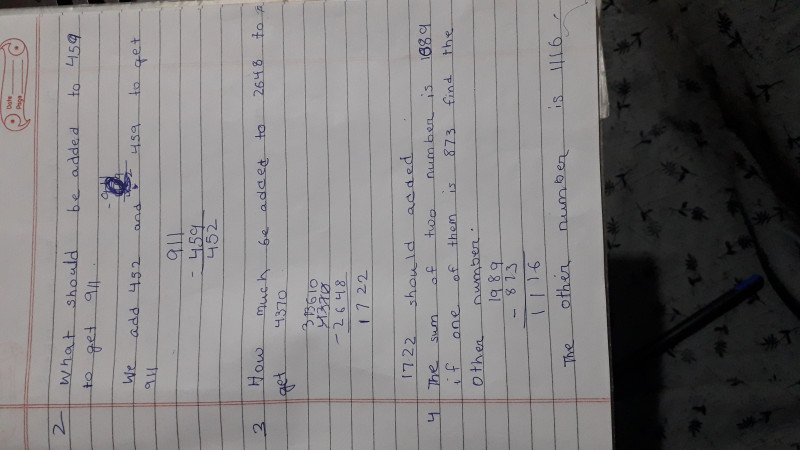 Date
Page
2 What should be added to 459
to get 911.
We add 452 and 459 to get
911
911
- 459
452
3 How much be added to 2648 to
get 4370
313610
4370
- 2648
1722
1722 should added
4 The sum of two number is 1989
if one of them is 873 find the
other number.
1989
- 873
1116
The other number is 1116.